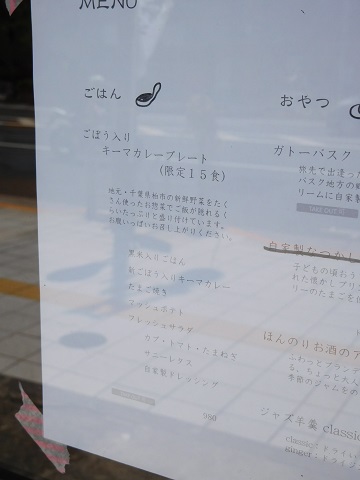 MENU
ごはん
ごぼう入り
キーマカレープレート
(限定15食)
地元・千葉県柏市の新鮮野菜をたく
さん使ったお惣菜でご飯が隠れるく
らいたっぷりと盛り付けています。
お腹いっぱいお召し上がりください。
黒米入りごはん
新ごぼう入りキーマカレー
たまご焼き
マッシュポテト
フレッシュサラダ
カブ・トマト・たまねぎ
サニーレタス
自家製ドレッシング
980
おやつ
ガトーバスク
旅先で出逢った
バスク地方の
リームに自家製
自家製なつかし
子どもの頃
れた懐かしプリ
リーのたまごを
ほんのりお酒のア
ふわっとブラン
る、ちょっと大
季節のジャムをの
ジャズ羊羹 classic
classic:ドライい
ginger:ドライ